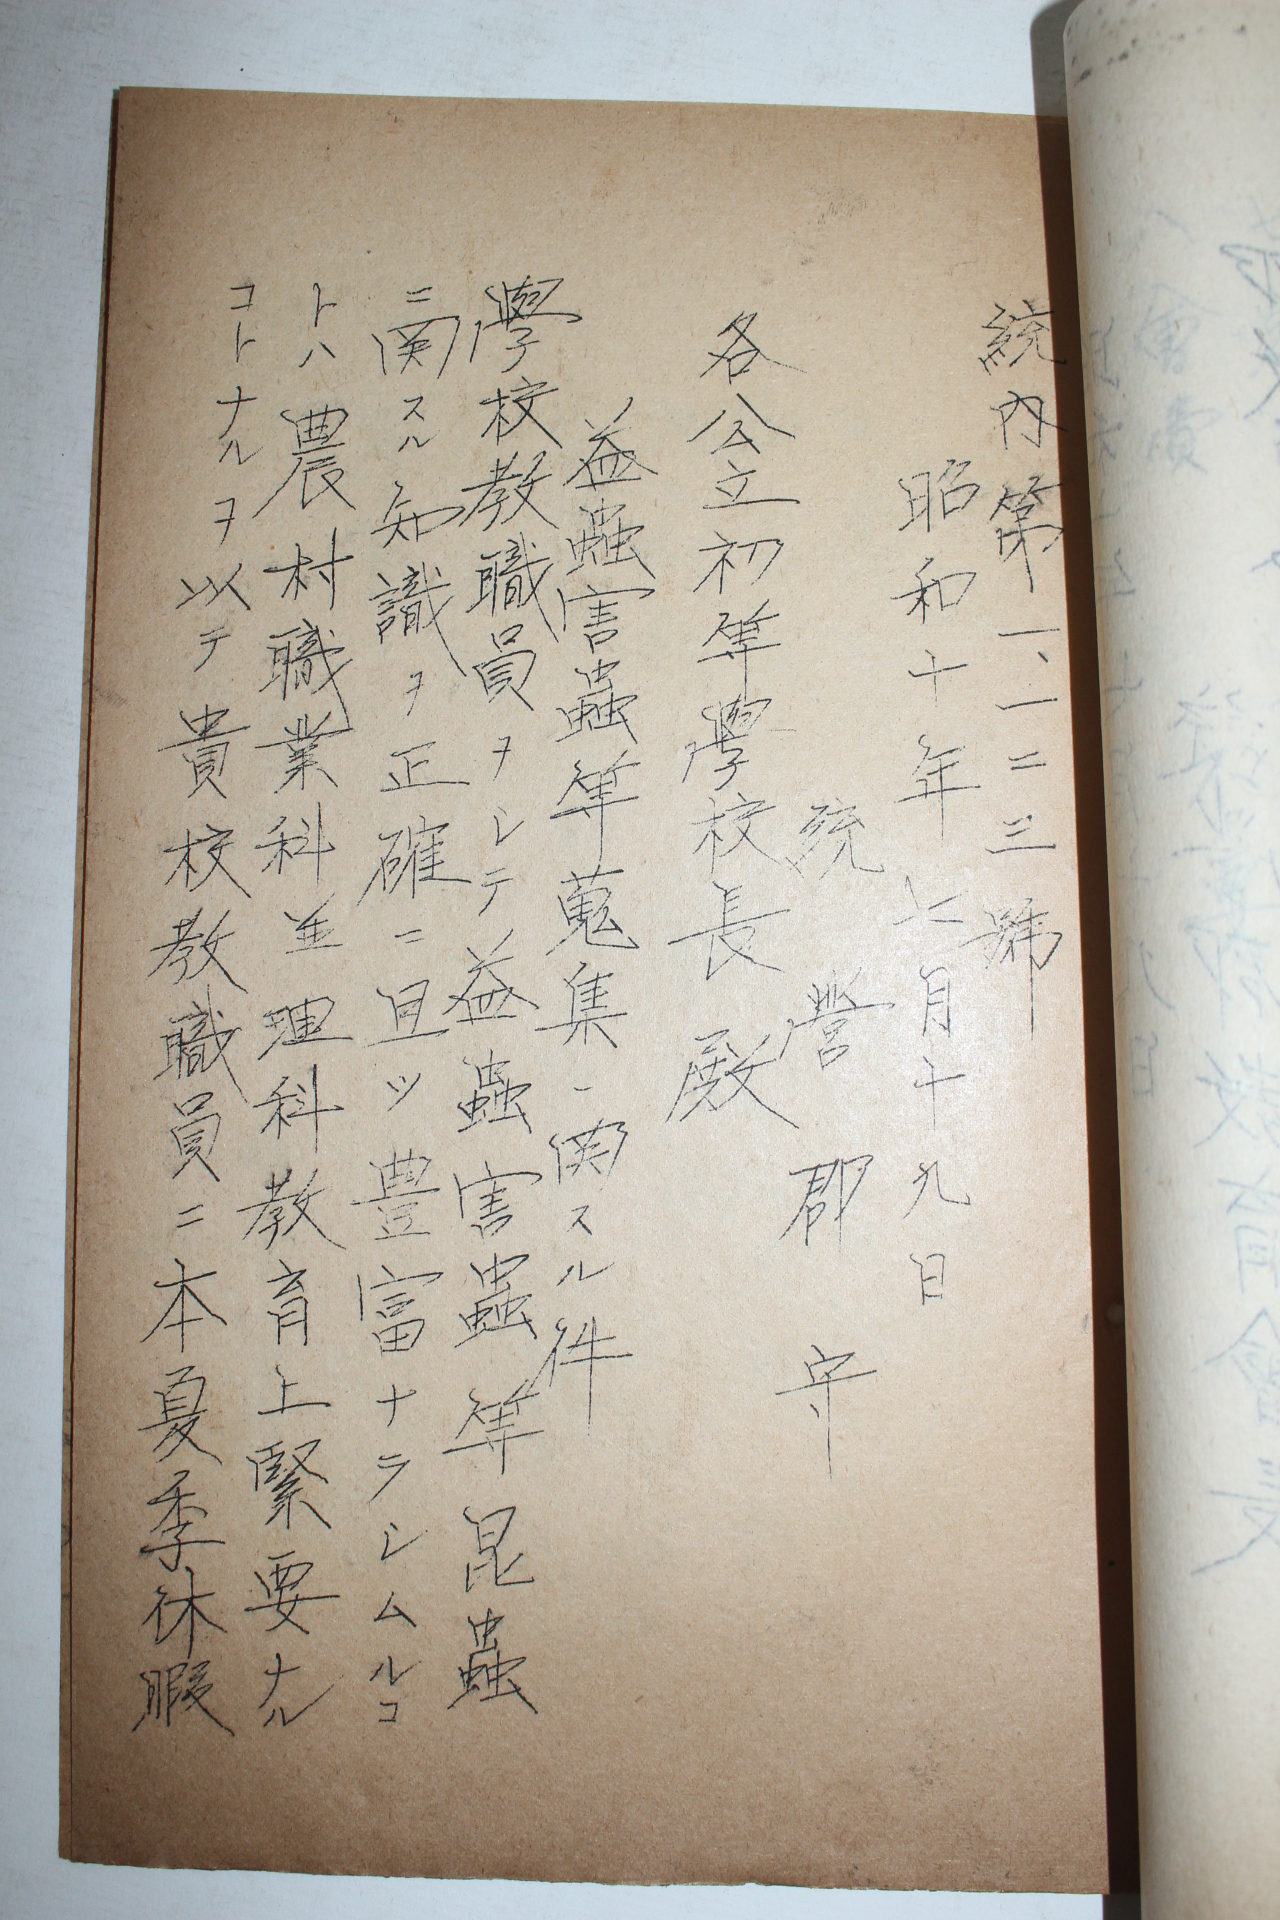 統内第一、一二三號
昭和十年七月十九日
統營郡守
各公立初等學校長殿
益蟲害蟲等蒐集ニ関スル件
學校教職員ヲシテ益蟲害蟲等昆蟲
ニ関スル知識ヲ正確ニ且ツ豊富ナラシムルコ
トハ農村職業科並理科教育上緊要ナル
コトナルヲ以テ貴校教職員ニ本夏季休暇